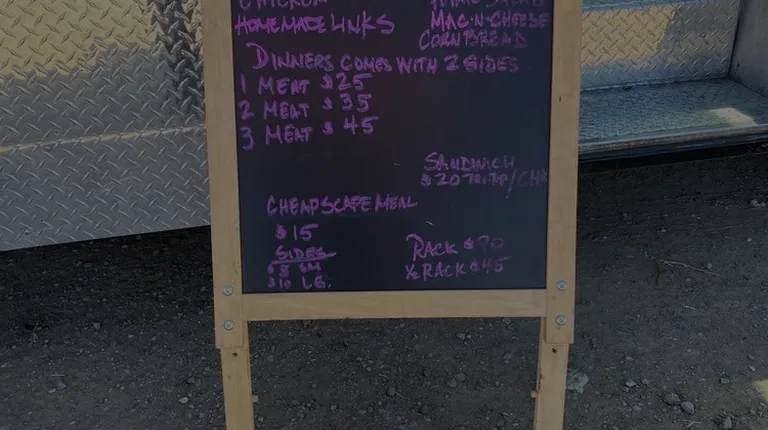 CHICKEN
HOMEMADE LINKS
SALAD
MAC'N'CHEESE
CORNBREAD
DINNERS COMES WITH 2 SIDES
1 MEAT $25
2 MEAT $35
3 MEAT $45
SANDWICH
$20 TRI-TIP/CHK
CHEAPSCAPE MEAL
$15
SIDES
SM
$10 LG.
RACK $90
½ RACK $45